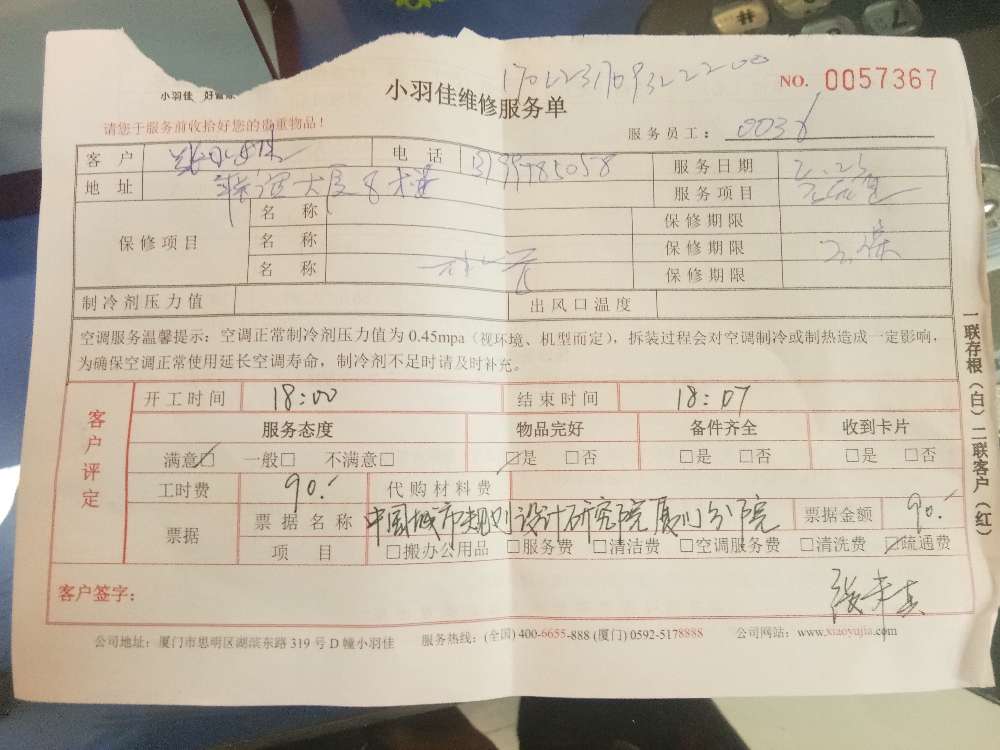 小羽佳 好管家
小羽佳维修服务单
NO. 0057367
请您于服务前收拾好您的贵重物品！
服务员工：
客户 电话 服务日期
地址 8楼 服务项目
保修项目 名称 保修期限
名称 保修期限
名称 保修期限
制冷剂压力值 出风口温度
空调服务温馨提示：空调正常制冷剂压力值为 0.45mpa（视环境、机型而定），拆装过程会对空调制冷或制热造成一定影响，
为确保空调正常使用延长空调寿命，制冷剂不足时请及时补充。
客户评定
开工时间 18:00 结束时间 18:07
服务态度 物品完好 备件齐全 收到卡片
满意☑ 一般□ 不满意□ ☑是 □否 □是 □否 □是 □否
工时费 90.- 代购材料费
票据 票据名称 中国城市规划设计研究院厦门分院 票据金额 90.-
项目 □搬办公用品 □服务费 □清洁费 □空调服务费 □清洗费 ☑疏通费
客户签字：
公司地址：厦门市思明区湖滨东路 319 号 D 幢小羽佳 服务热线：(全国) 400-6655-888 (厦门) 0592-5178888 公司网站：www.xiaoyujia.com
一联存根（白）二联客户（红）